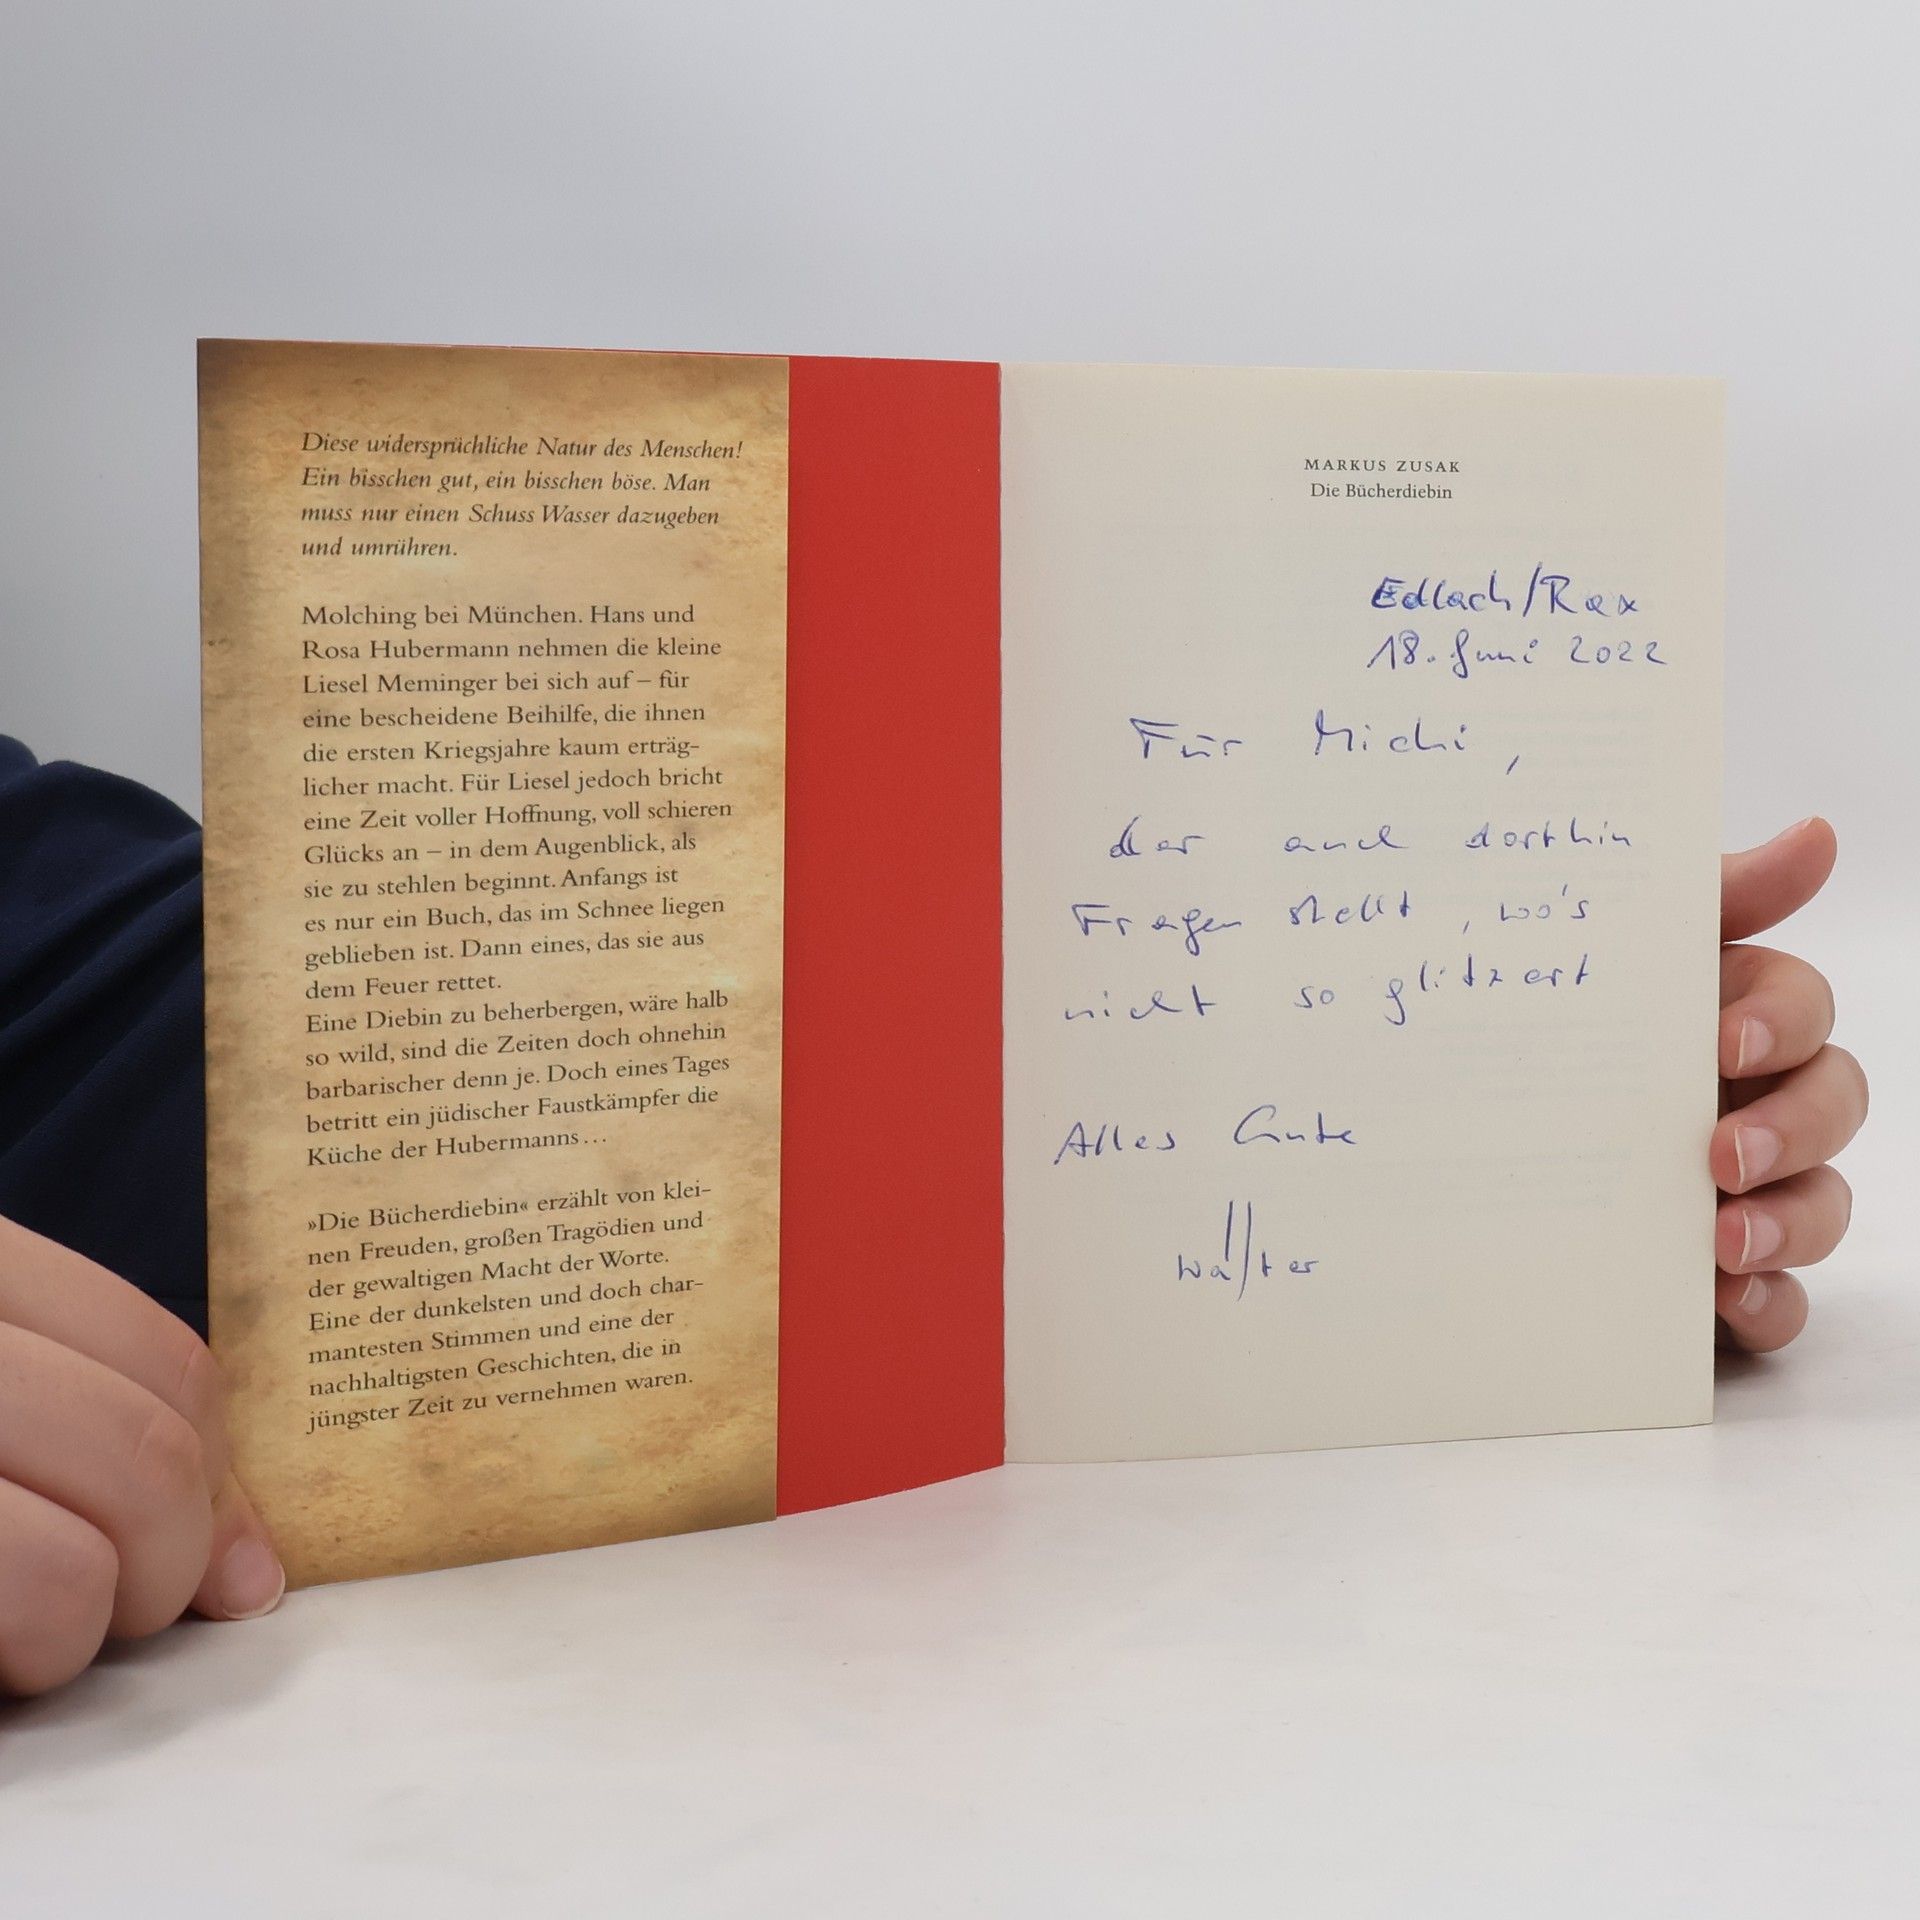 Diese widersprüchliche Natur des Menschen!
Ein bisschen gut, ein bisschen böse. Man
muss nur einen Schuss Wasser dazugeben
und umrühren.
Molching bei München. Hans und
Rosa Hubermann nehmen die kleine
Liesel Meminger bei sich auf – für
eine bescheidene Beihilfe, die ihnen
die ersten Kriegsjahre kaum erträg-
licher macht. Für Liesel jedoch bricht
eine Zeit voller Hoffnung, voll schieren
Glücks an – in dem Augenblick, als
sie zu stehlen beginnt. Anfangs ist
es nur ein Buch, das im Schnee liegen
geblieben ist. Dann eines, das sie aus
dem Feuer rettet.
Eine Diebin zu beherbergen, wäre halb
so wild, sind die Zeiten doch ohnehin
barbarischer denn je. Doch eines Tages
betritt ein jüdischer Faustkämpfer die
Küche der Hubermanns…
»Die Bücherdiebin« erzählt von klei-
nen Freuden, großen Tragödien und
der gewaltigen Macht der Worte.
Eine der dunkelsten und doch char-
mantesten Stimmen und eine der
nachhaltigsten Geschichten, die in
jüngster Zeit zu vernehmen waren.
MARKUS ZUSAK
Die Bücherdiebin
Edlach/Rax
18. Juni 2022
Für Michi,
der auch dorthin
Fragen stellt, wo's
nicht so glitzert
Alles Gute
Walter